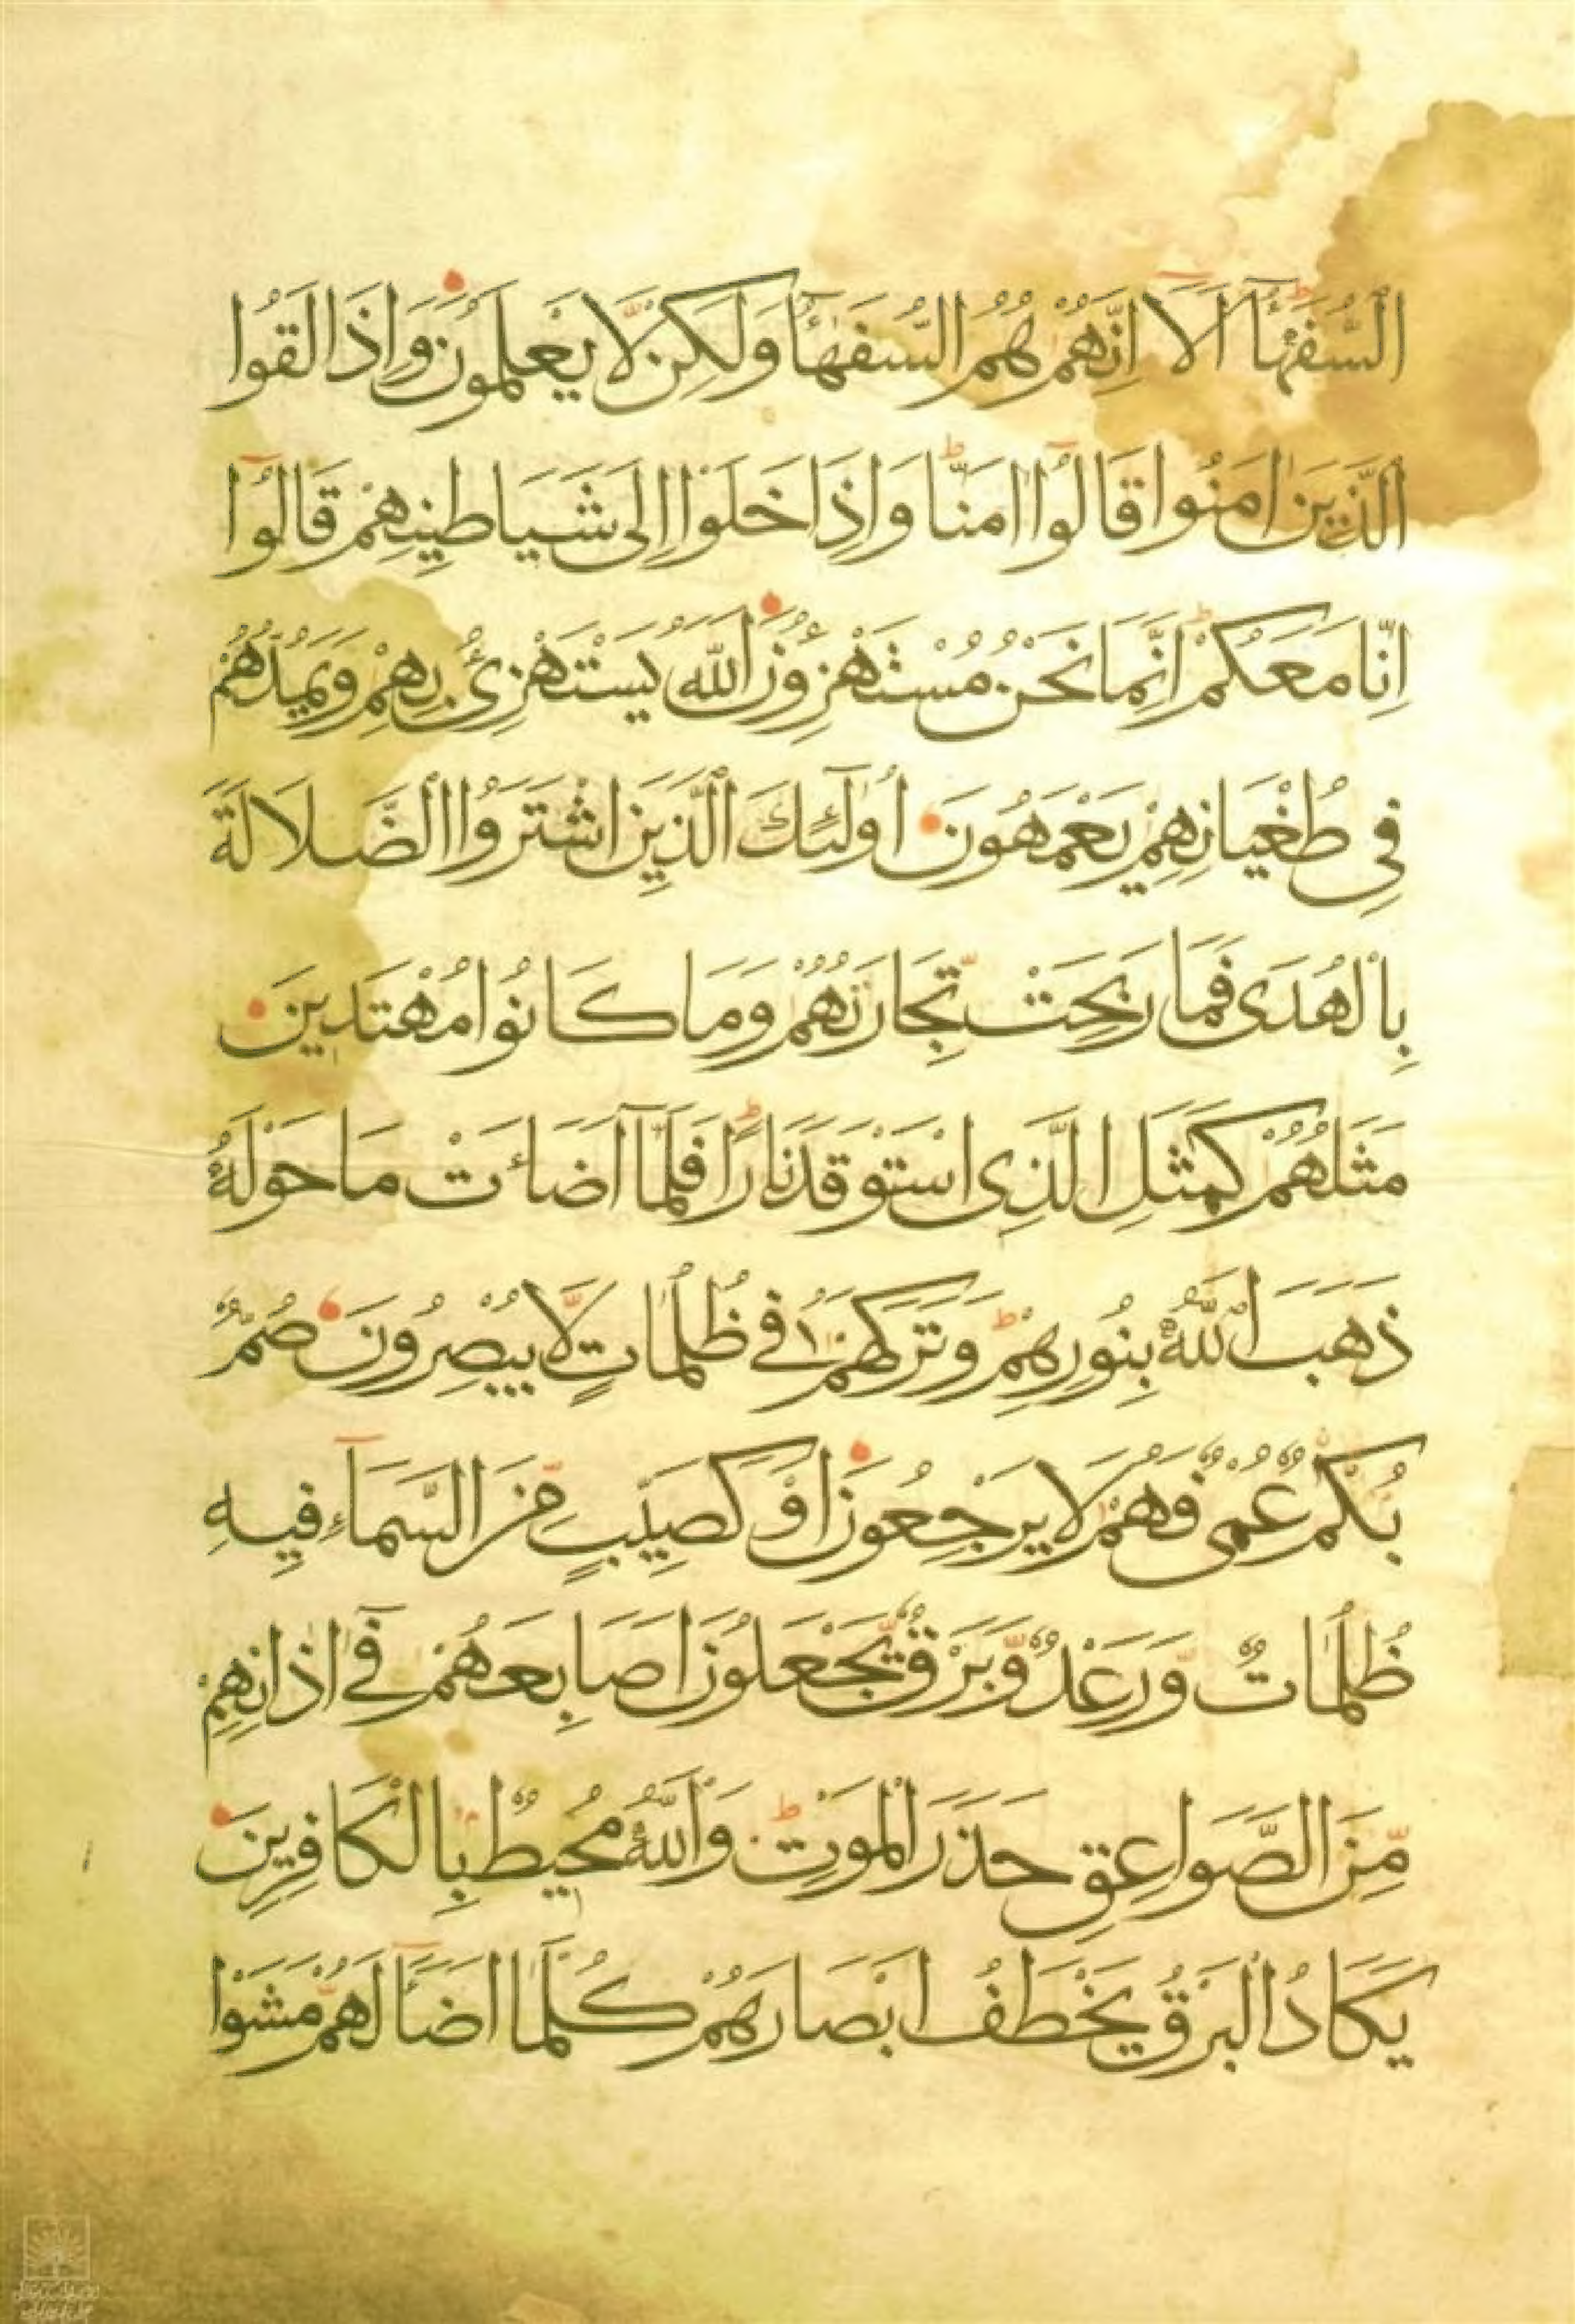 السُّفَهَآءُ اَلَآ اِنَّهُمْ هُمُ السُّفَهَآءُ وَلَكِنْ لَّا يَعْلَمُونَ وَاِذَا لَقُوا
الَّذِينَ اٰمَنُوا قَالُوٓا اٰمَنَّا وَاِذَا خَلَوْا اِلَى شَيَاطِينِهِمْ قَالُوٓا
اِنَّا مَعَكُمْ اِنَّمَا نَحْنُ مُسْتَهْزِءُونَ اَللّٰهُ يَسْتَهْزِئُ بِهِمْ وَيَمُدُّهُمْ
فِي طُغْيَانِهِمْ يَعْمَهُونَ اُولٰٓئِكَ الَّذِينَ اشْتَرَوُا الضَّلَالَةَ
بِالْهُدَى فَمَا رَبِحَتْ تِّجَارَتُهُمْ وَمَا كَانُوا مُهْتَدِينَ
مَثَلُهُمْ كَمَثَلِ الَّذِى اسْتَوْقَدَ نَارًا فَلَمَّآ اَضَاءَتْ مَا حَوْلَهُ
ذَهَبَ اللّٰهُ بِنُورِهِمْ وَتَرَكَهُمْ فِي ظُلُمَاتٍ لَّا يُبْصِرُونَ صُمٌّ
بُكْمٌ عُمْىٌ فَهُمْ لَا يَرْجِعُونَ اَوْ كَصَيِّبٍ مِّنَ السَّمَآءِ فِيهِ
ظُلُمَاتٌ وَّرَعْدٌ وَّبَرْقٌ يَّجْعَلُونَ اَصَابِعَهُمْ فِيٓ اٰذَانِهِمْ
مِّنَ الصَّوَاعِقِ حَذَرَ الْمَوْتِ وَاللّٰهُ مُحِيطٌ بِالْكَافِرِينَ
يَكَادُ الْبَرْقُ يَخْطَفُ اَبْصَارَهُمْ كُلَّمَآ اَضَآءَ لَهُمْ مَّشَوْا